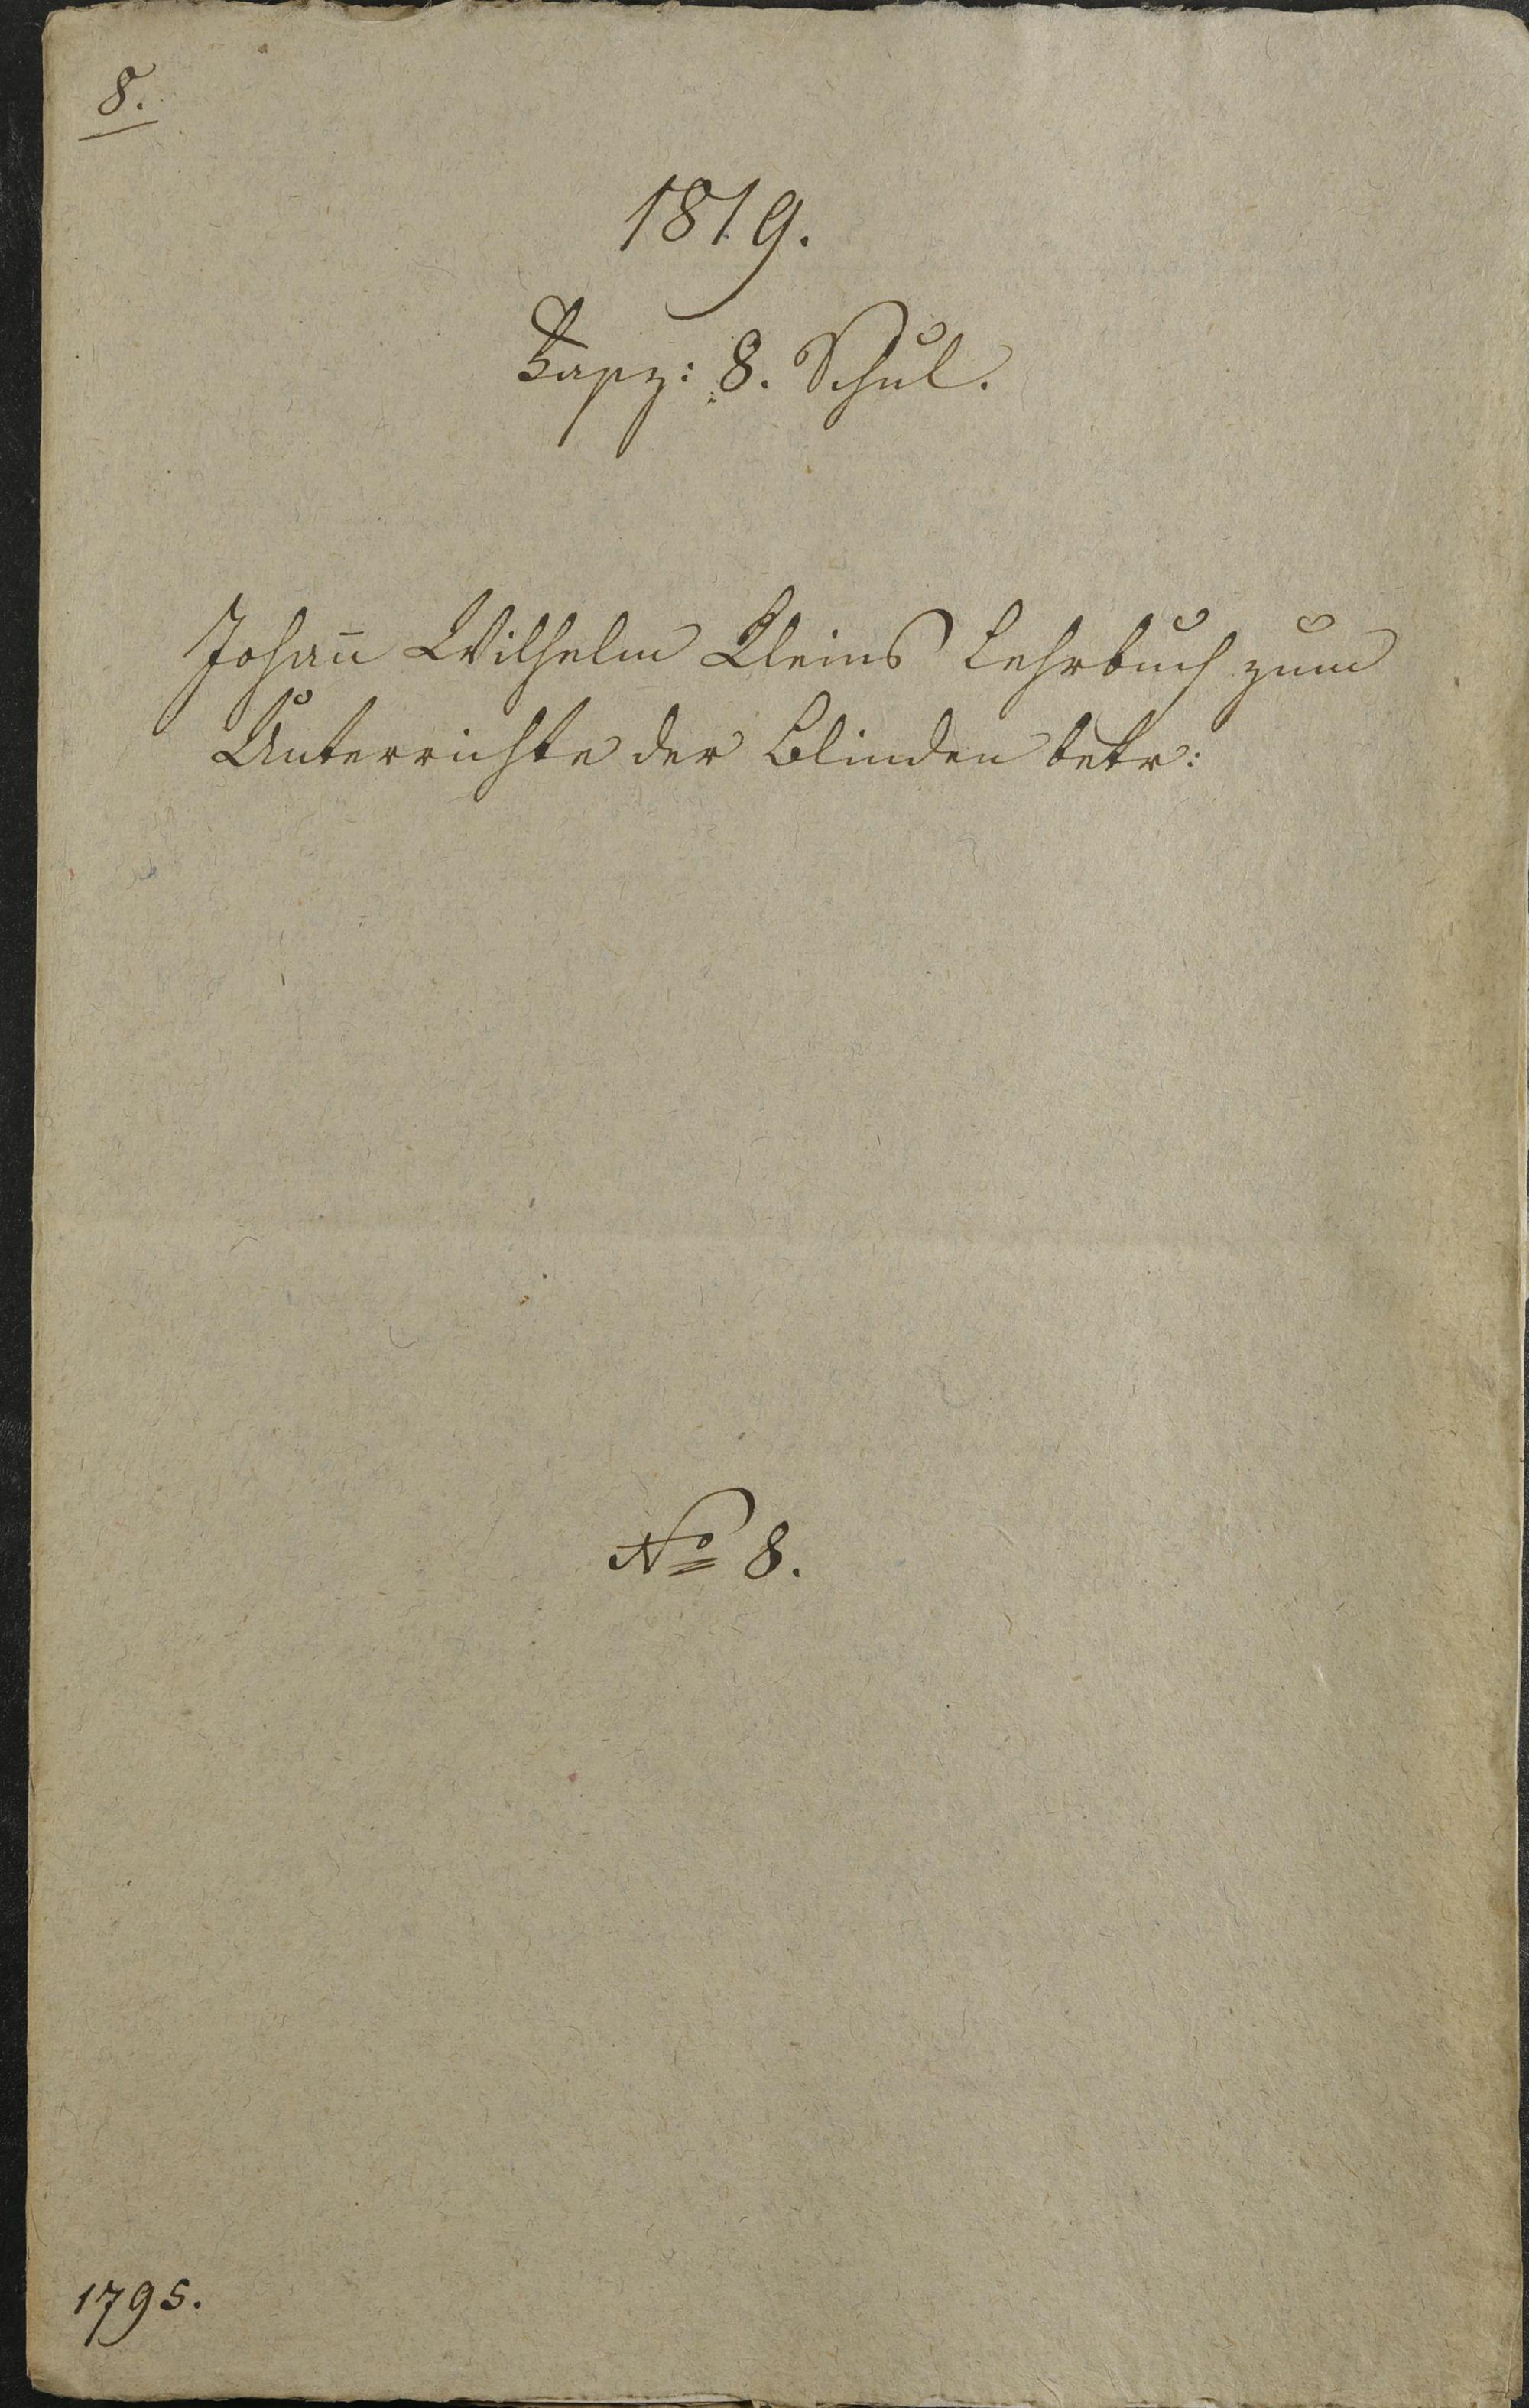 8.
1819.
Fasz: 8. Schul.
Johan̄ Wilhelm Kleins Lehrbuch zum
Unterrichte der Blinden betr:
No 8.
1795.